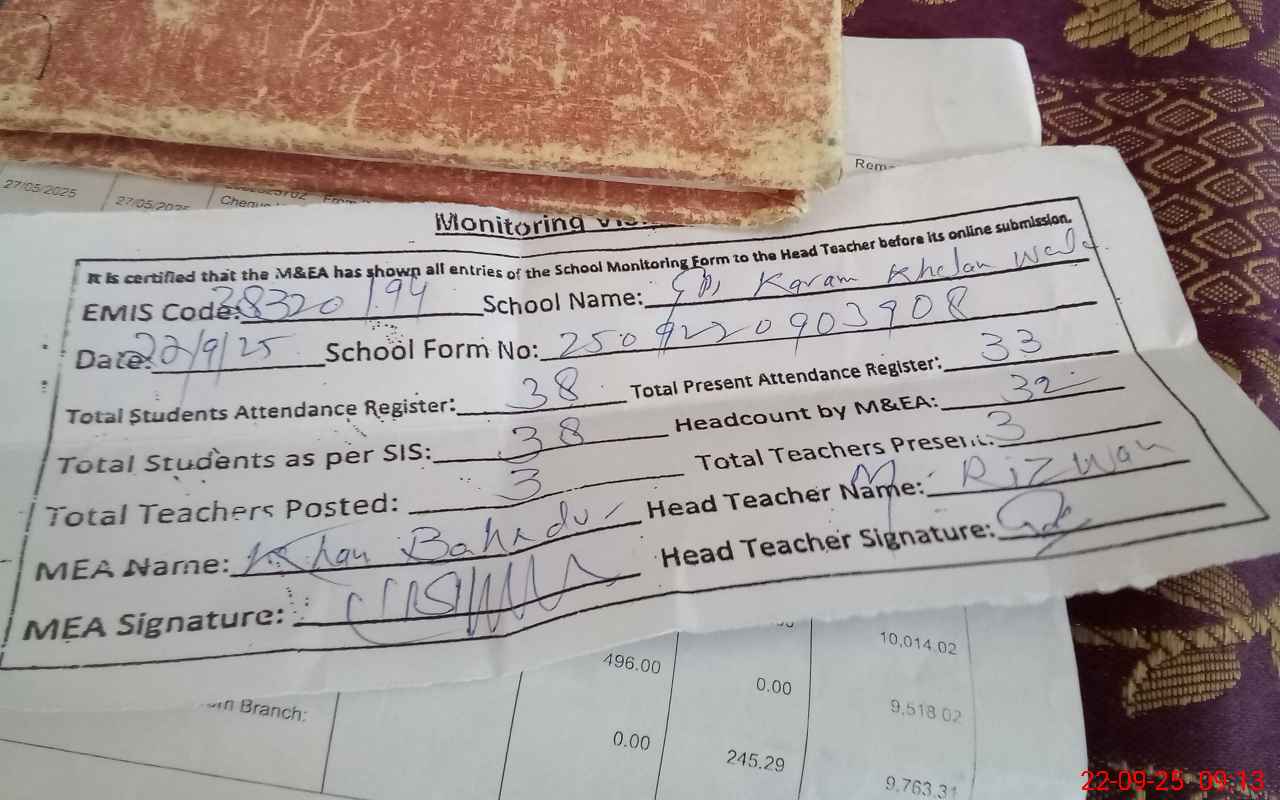 27/05/2025
27/05/2025
Rema
Monitoring Vis
It is certified that the M&EA has shown all entries of the School Monitoring Form to the Head Teacher before its online submission.
EMIS Code: 38320194 School Name: Karam Khelan Wala
Date: 22/9/25 School Form No: 2509220903908
Total Students Attendance Register: 38 Total Present Attendance Register: 33
Total Students as per SIS: 38 Headcount by M&EA: 32
Total Teachers Posted: 3 Total Teachers Present: 3
MEA Name: Khan Bahadur Head Teacher Name: M. Rizwan
MEA Signature: Head Teacher Signature:
10,014.02
496.00 0.00 9,518.02
Branch:
0.00 245.29 9,763.31
22-09-25 09:13